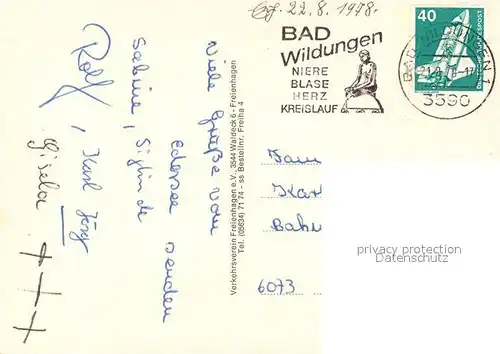 Eg. 22.8.1978.
BAD
Wildungen
NIERE
BLASE
HERZ
KREISLAUF
40
DEUTSCHE BUNDESPOST
BAD WILDUNGEN 1
21.8.78-17
3590
Viele Grüße vom
Edersee senden
Sabine, Siglinde
Rolf, Karl Jörg
Gisela
+++
Verkehrsverein Freienhagen e.V., 3544 Waldeck 6 - Freienhagen
Tel. (05634) 71 74 - ss Bestellnr. Freiha 4
Fam
Kar
Bahn
6073
privacy protection
Datenschutz